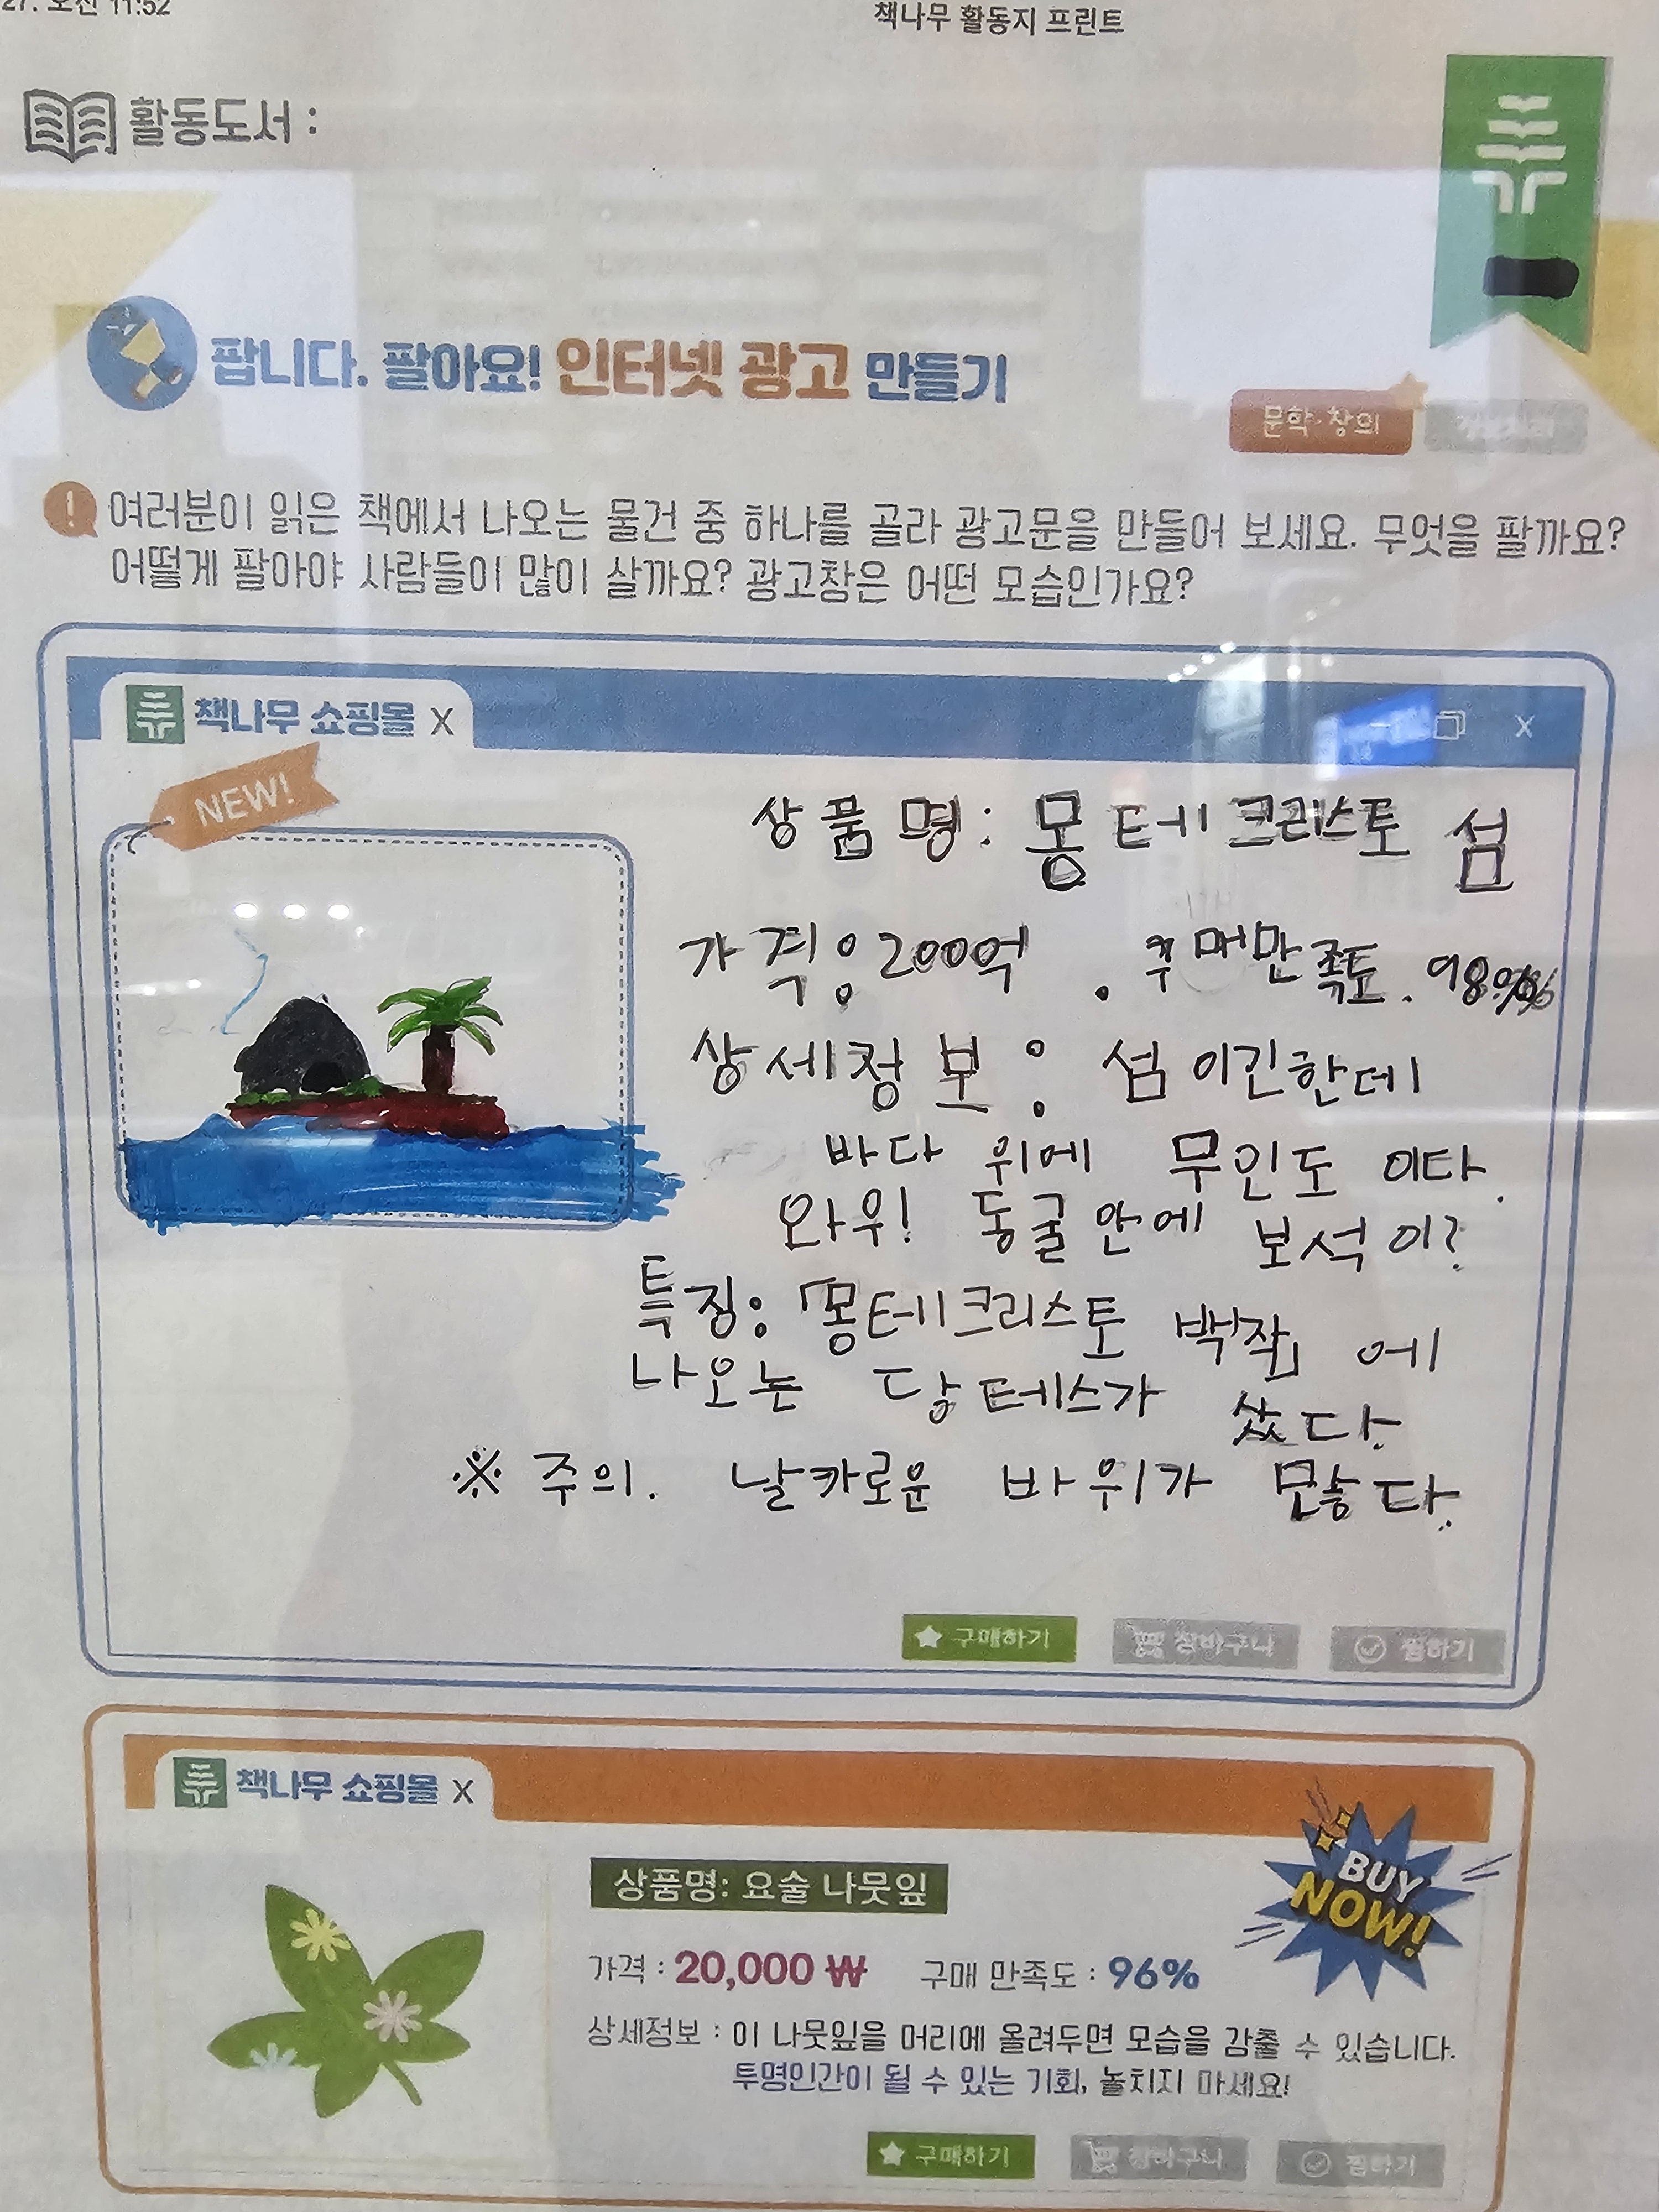 27. 오전 11:52
책나무 활동지 프린트
활동도서 :
팝니다. 팔아요! 인터넷 광고 만들기
문학·창의
여러분이 읽은 책에서 나오는 물건 중 하나를 골라 광고문을 만들어 보세요. 무엇을 팔까요?
어떻게 팔아야 사람들이 많이 살까요? 광고창은 어떤 모습인가요?
책나무 쇼핑몰 X
X
NEW!
상품명: 몽테크리스토 섬
가격: 200억 . 구매만족도. 98%
상세정보: 섬이긴한데
바다 위에 무인도 이다.
와우! 동굴안에 보석이?
특징: 「몽테크리스토 백작」에
나오는 당테스가 샀다.
※ 주의. 날카로운 바위가 많다.
구매하기 장바구니 찜하기
책나무 쇼핑몰 X
BUY
NOW!
상품명: 요술 나뭇잎
가격 : 20,000 ₩ 구매 만족도 : 96%
상세정보 : 이 나뭇잎을 머리에 올려두면 모습을 감출 수 있습니다.
투명인간이 될 수 있는 기회, 놓치지 마세요!
구매하기 장바구니 찜하기